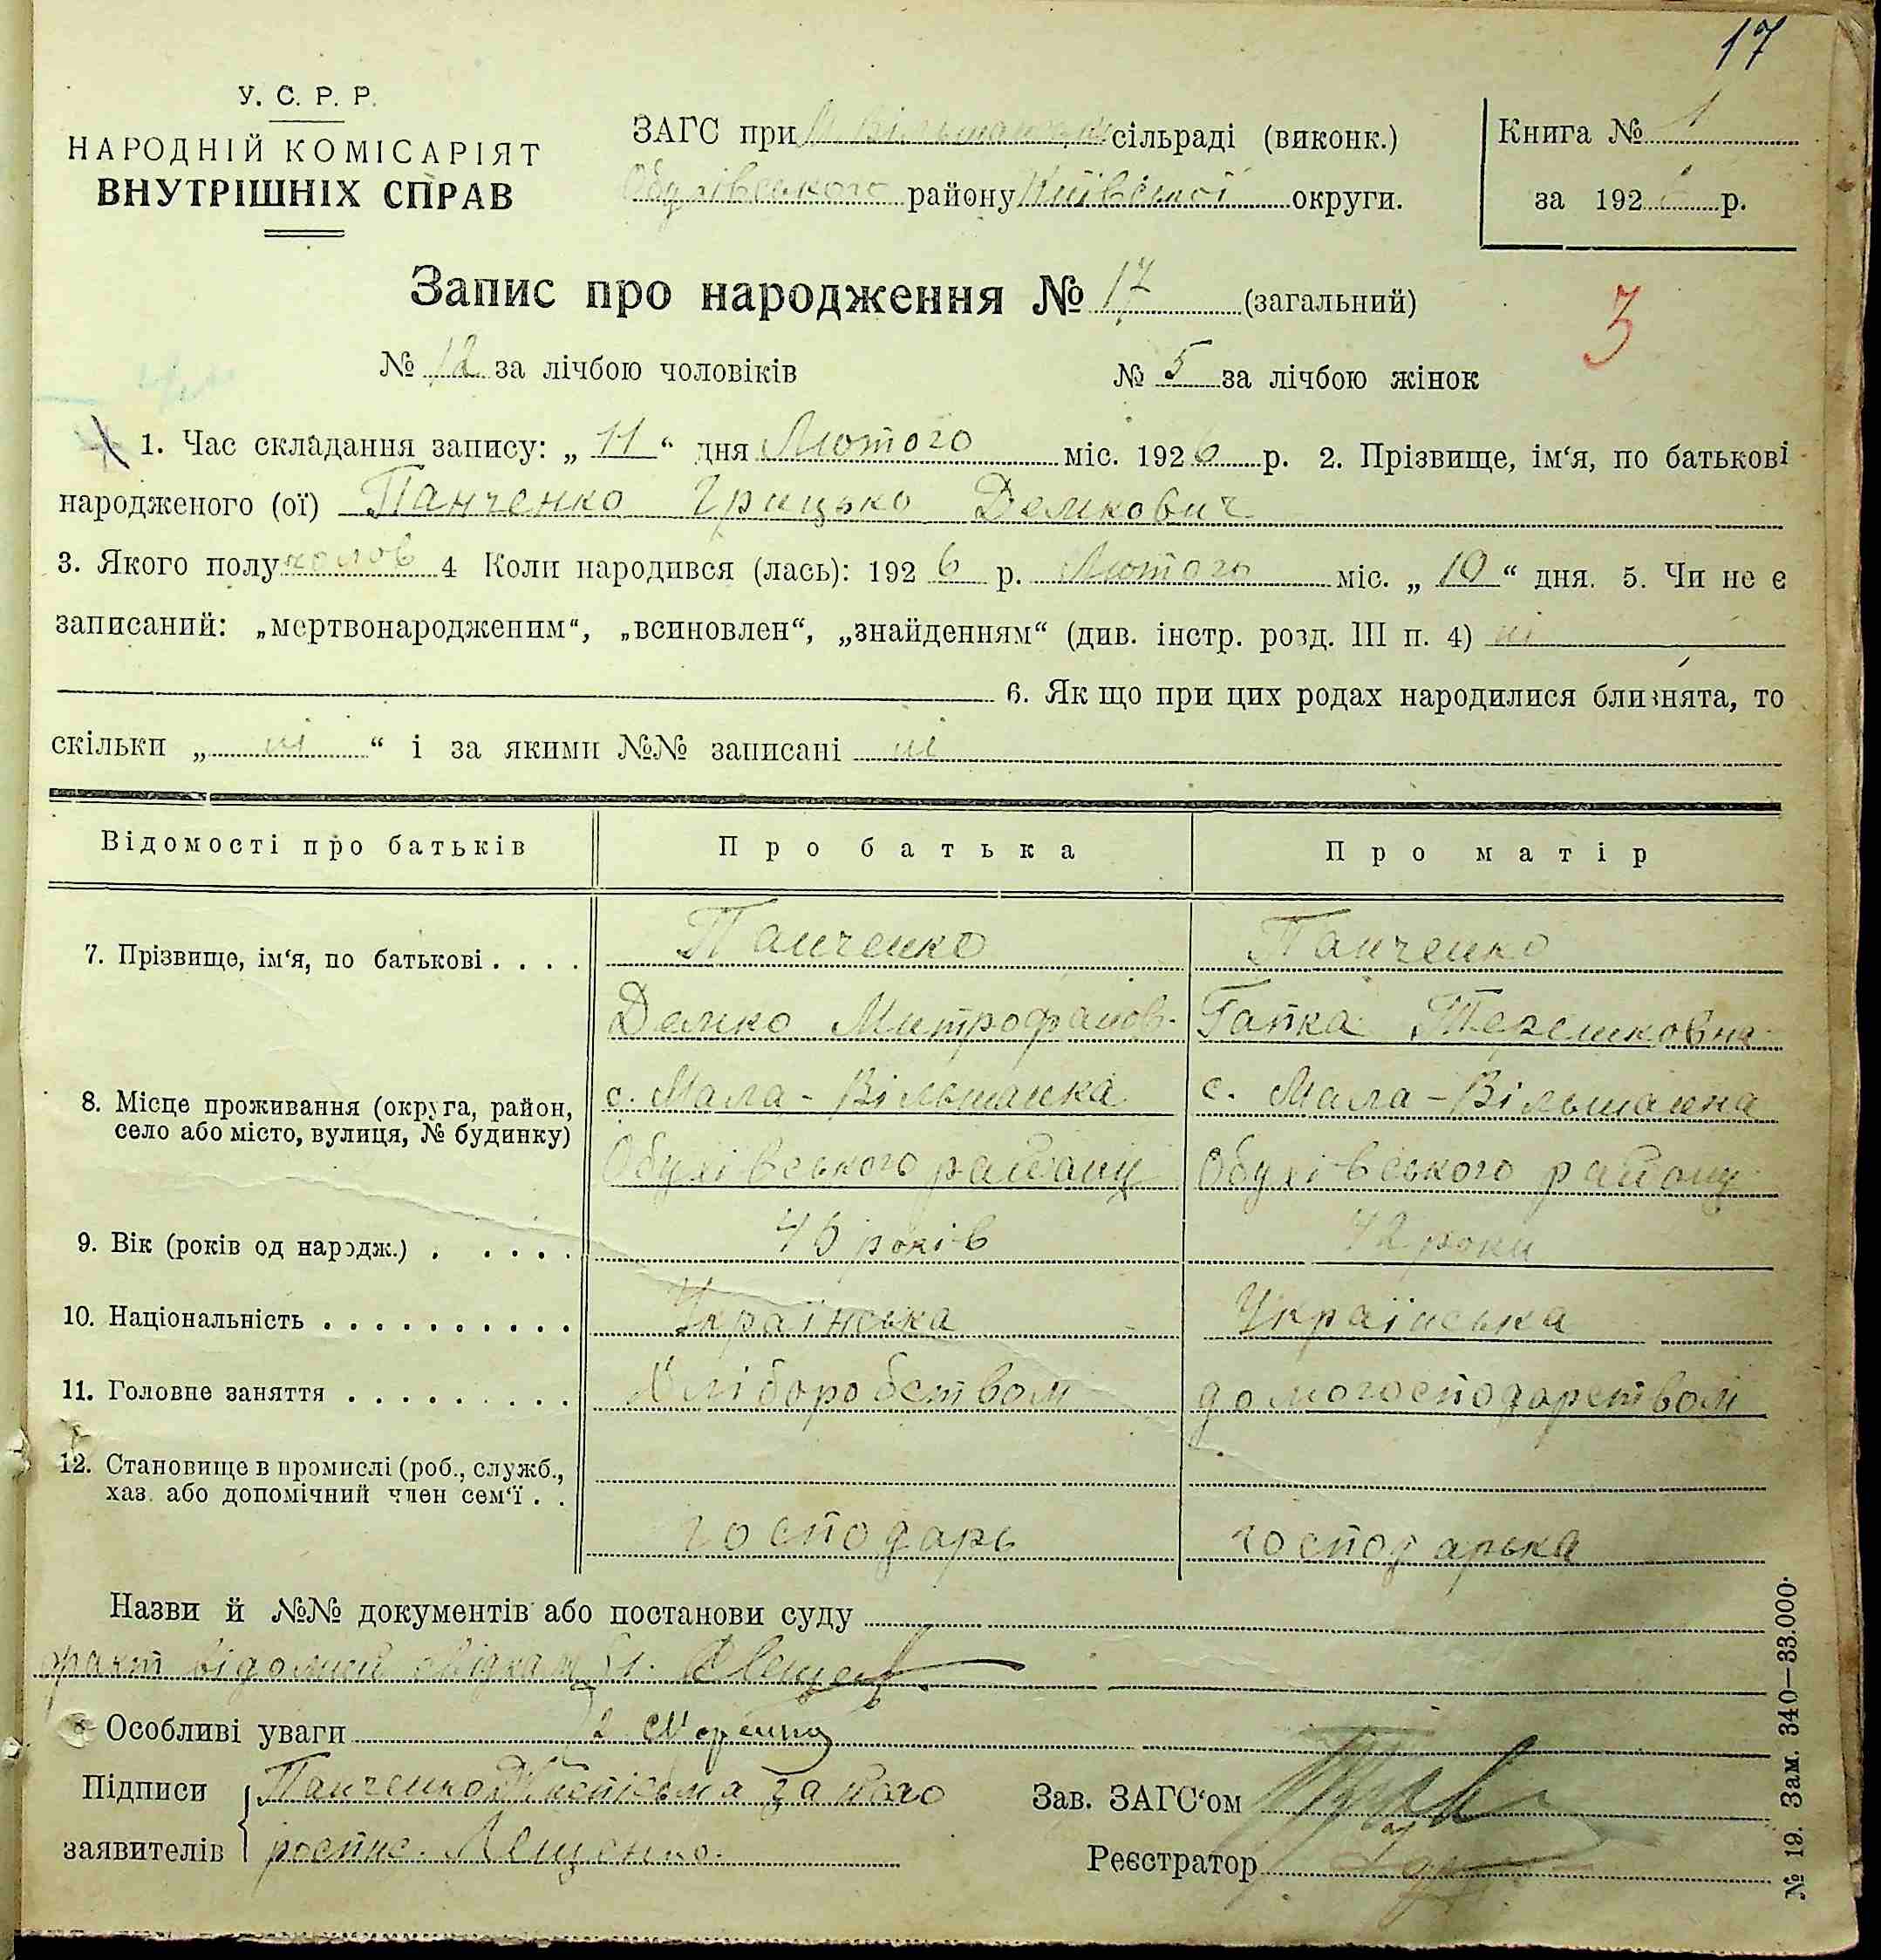 17
У. С. Р. Р.
НАРОДНІЙ КОМІСАРІЯТ
ВНУТРІШНІХ СПРАВ
ЗАГС при М. Вільшанській сільраді (виконк.)
Обухівського району Київської округи.
Книга № 1
за 1926 р.
Запис про народження № 17 (загальний)
3
№ 12 за лічбою чоловіків № 5 за лічбою жінок
1. Час складання запису: „ 11 “ дня Лютого міс. 1926 р. 2. Прізвище, ім‘я, по батькові
народженого (ої) Панченко Грицько Демкович
3. Якого полу чолов 4 Коли народився (лась): 1926 р. Лютого міс. „ 10 “ дня. 5. Чи не є
записаний: „мертвонародженим“, „всиновлен“, „знайденням“ (див. інстр. розд. III п. 4) ні
6. Як що при цих родах народилися близнята, то
скільки „ ні “ і за якими №№ записані ні
Відомості про батьків Про батька Про матір
7. Прізвище, ім‘я, по батькові . . . . Панченко Панченко
Демко Митрофанов. Гапка Терешковна
8. Місце проживання (округа, район, с. Мала-Вільшанка с. Мала-Вільшанка
село або місто, вулиця, № будинку)
Обухівського району Обухівського району
9. Вік (років од народж.) . . . . . 45 років 42 роки
10. Національність . . . . . . . . . . Українська Українська
11. Головне заняття . . . . . . . . . Хліборобством домогосподарством
12. Становище в промислі (роб., служб.,
хаз. або допомічний член сем‘ї . .
господарь господарька
Назви й №№ документів або постанови суду
факт відомий свідкам 1.
Особливі уваги 2
Підписи Панченко неписьма за його
заявителів роспис. Лещенко.
Зав. ЗАГС‘ом
Реєстратор
№ 19. Зам. 340—33.000.